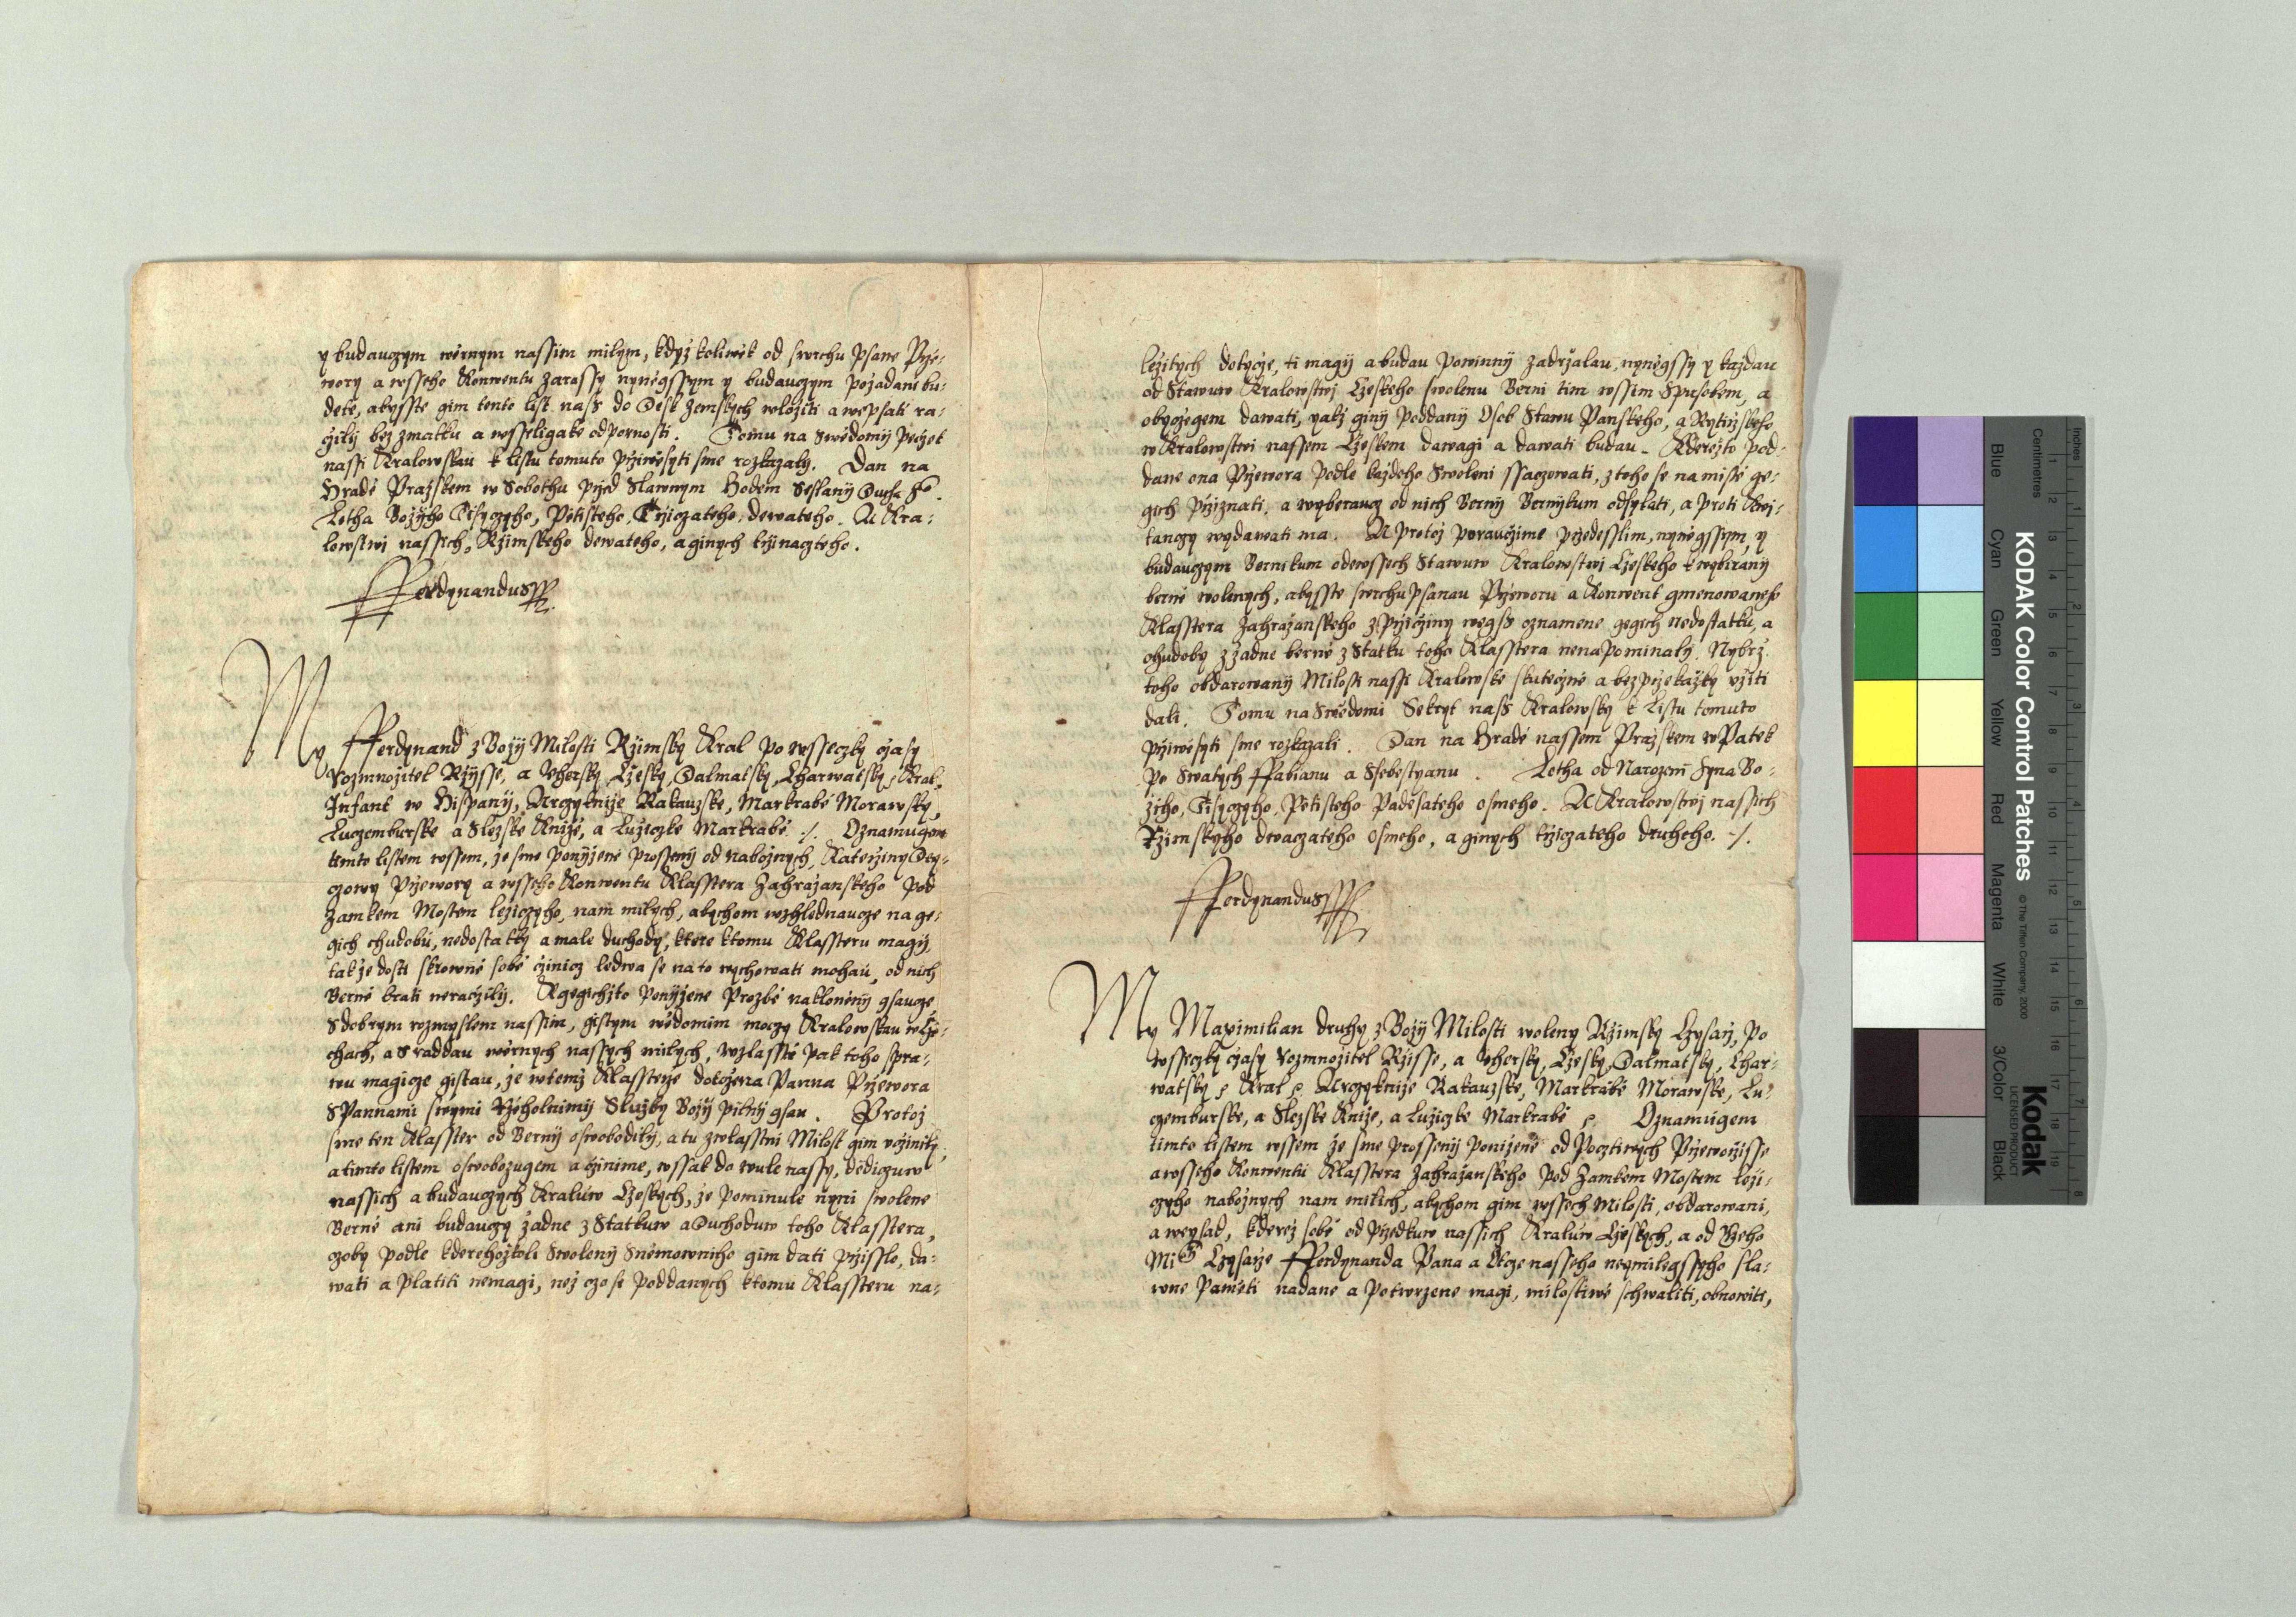 y budauczym wěrnym nassim milym, když koliwěk od swrchu psane Pržewory
wory a wsseho Konwentu Zarassy nyněgssym y budauczym požadani bu-
dete, abysste gim tento list nass do Desk Zemskych wložiti a wepsati ra-
čžily bez zmatku a wsseligake odpornosti. Tomu na Swědomy pečžet
nassi Kralowskau k listu tomuto prziwěsyti sme rozkazaly. Dan na
Hradě Pražskem w Sobothu pržed Slawnym Hodem Seslany Ducha
Letha Božyho Tisyczyho, Pětisteho, Tržiczateho, dewateho. A Kra-
lowstwi nassich, Ržimskeho dewateho, a ginych tržinaczteho.
Fferdynandus
My Fferdynand z Božy Milosti Ržimsky Kral po wsseczky čžasy
Rozmnožitel Ržysse, a Vhersky, Čžesky, Dalmatsky, Charwatsky Kral,
Infant w Hispany, Arczyknize Rakauzske, Markrabě Morawsky,
Luczemburske a Slezske Kniže, a Lužiczke Markrabě ./. Oznamugem
timto listem wssem, že sme ponyženě prosseny od nabožnych, Katerziny
czowy Pržewory a wsseho Konwentu Klasstera Zahražanskeho pod
Zamkem Mostem ležiczyho, nam milych, abychom wzhlednaucze na ge-
gich chudobu, nedostatky a male duchody, ktere k tomu Klassteru magy,
tak že dosti skrowně sobě čžinicz ledwa se na to wychowati mohau, od nich
Berně brati neračžily. K gegichžto ponyžene Prozbě nakloněny gsaucze
S dobrym rozmyslem nassim, gistym wědomim moczy Kralowskau w Čže-
chach, a S raddau wěrnych nassych milych, wzlasstě pak toho spra-
wu magicze gistau, že w temž Klassterže dotčžena Panna Pržewora
S Pannami swymi Ržeholnimy Služby Božy pilny gsau. Protož
sme ten Klasster od Berny oswobodily, a tu zwlasstni Milost gim včžinily,
a timto listem oswobozugem a čžinime, wssak do wule nassy, dědiczuw
nassich a budauczych Kraluw Čžeskych, že pominule nyni swolene
Berně ani budauczy žadne z Statkuw a Duchoduw toho Klasstera,
czoby podle kterehožkoli Swoleny Sněmowniho gim dati pržisslo, da-
wati a platiti nemagi, než czo se poddanych k tomu Klassteru na-
ležitych dotyčže, ti magij a budau powinny zadržalau, nyněgssy y každau
od Stawuw Kralowstwj Čžeskeho swolenu Berni tim wssim Spusobem, a
obyčžegem dawati, yakž giny poddany Osob Stawu Panskeho, a Rytiržskeho
w Kralowstwi nassem Čžeskem dawagi a dawati budau. Kderežto pod-
dane ona Pržewora podle každeho Swoleni ssaczowati, z toho se na mistě ge-
gich pržiznati, a wyberaucz od nich Berny Bernykum odsylati, a proti Kwi-
tanczy wydawati ma. A protož poraučžime pržedesslim, nyněgssym, y
budauczym Bernikum ode wssech Stawuw Kralowstwi Čžeskeho k wybirany
berně wolenych, abysste swrchupsanau Pržeworu a Konwent gmenowaneho
Klasstera Zahražanskeho z pržičžiny wegss oznamene gegich nedostatku, a
chudoby z žadne berně z Statku toho Klasstera nenapominaly. Nybrž
toho obdarowany Milosti nassi Kralowske skutečžně a bez pržekažky vžiti
dali. Tomu na Swědomi Sekryt nass Kralowsky k Listu tomuto
pržiwěsyti sme rozkazali. Dan na Hradě nassem Pražskem w Patek
po Swatych Ffabianu a Ssebestyanu. Letha od Narozeni Syna Bo-
žiho, Tisyczyho, Pětisteho Padesateho osmeho. A Kralowstwj nassich
Ržimskyho dwaczateho osmeho, a ginych tržiczateho druheho. ./.
Fferdynandus
My Maximilian druhy z Božy Milosti woleny Ržimsky Czysarž, po
wsseczky čžasy Rozmnožitel Ržisse, a Vhersky, Čžesky, Dalmatsky, Char-
watsky Kral Arczykniže Rakauzske, Markrabě Morawske, Lu-
czemburske, a Slezske Kniže, a Lužiczke Markrabě Oznamugem
timto listem wssem že sme prosseny poniženě od Pocztiwych Pržeworžisse
a wsseho Konwentu Klasstera Zahražanskeho pod Zamkem Mostem leži-
czyho nabožnych nam milich, abychom gim wssech Milosti, obdarowani,
a weysad, kderež sobě od Pržedkuw nassich Kraluw Čžeskych, a od Geho
Mi Czysarže Fferdynanda Pana a Otcze nasseho neymilegssyho sla-
wne Paměti nadane a potwrzene magi, milostiwě schwaliti, obnowiti,
KODAK Color Control Patches © The Tiffen Company, 2000
Kodak
LICENSED PRODUCT
Inches
Centimetres
Blue
Cyan
Green
Yellow
Red
Magenta
White
3/Color
Black